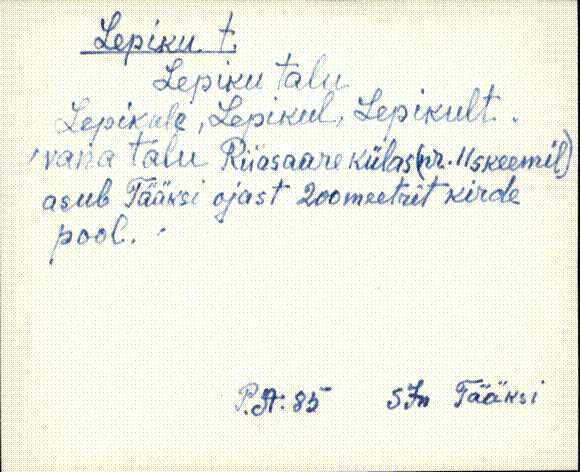 Lepiku t.
Lepiku talu
Lepikule, Lepikul, Lepikult.
vana talu Riiasaare külas (nr. 11 skeemil)
asub Tääksi ojast 200 meetrit kirde
pool.
P.A. 85 SJn Tääksi